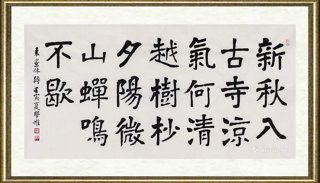 新秋入
古寺涼
氣何清
越樹杪
夕陽微
山蟬鳴
不歇
袁景休詩